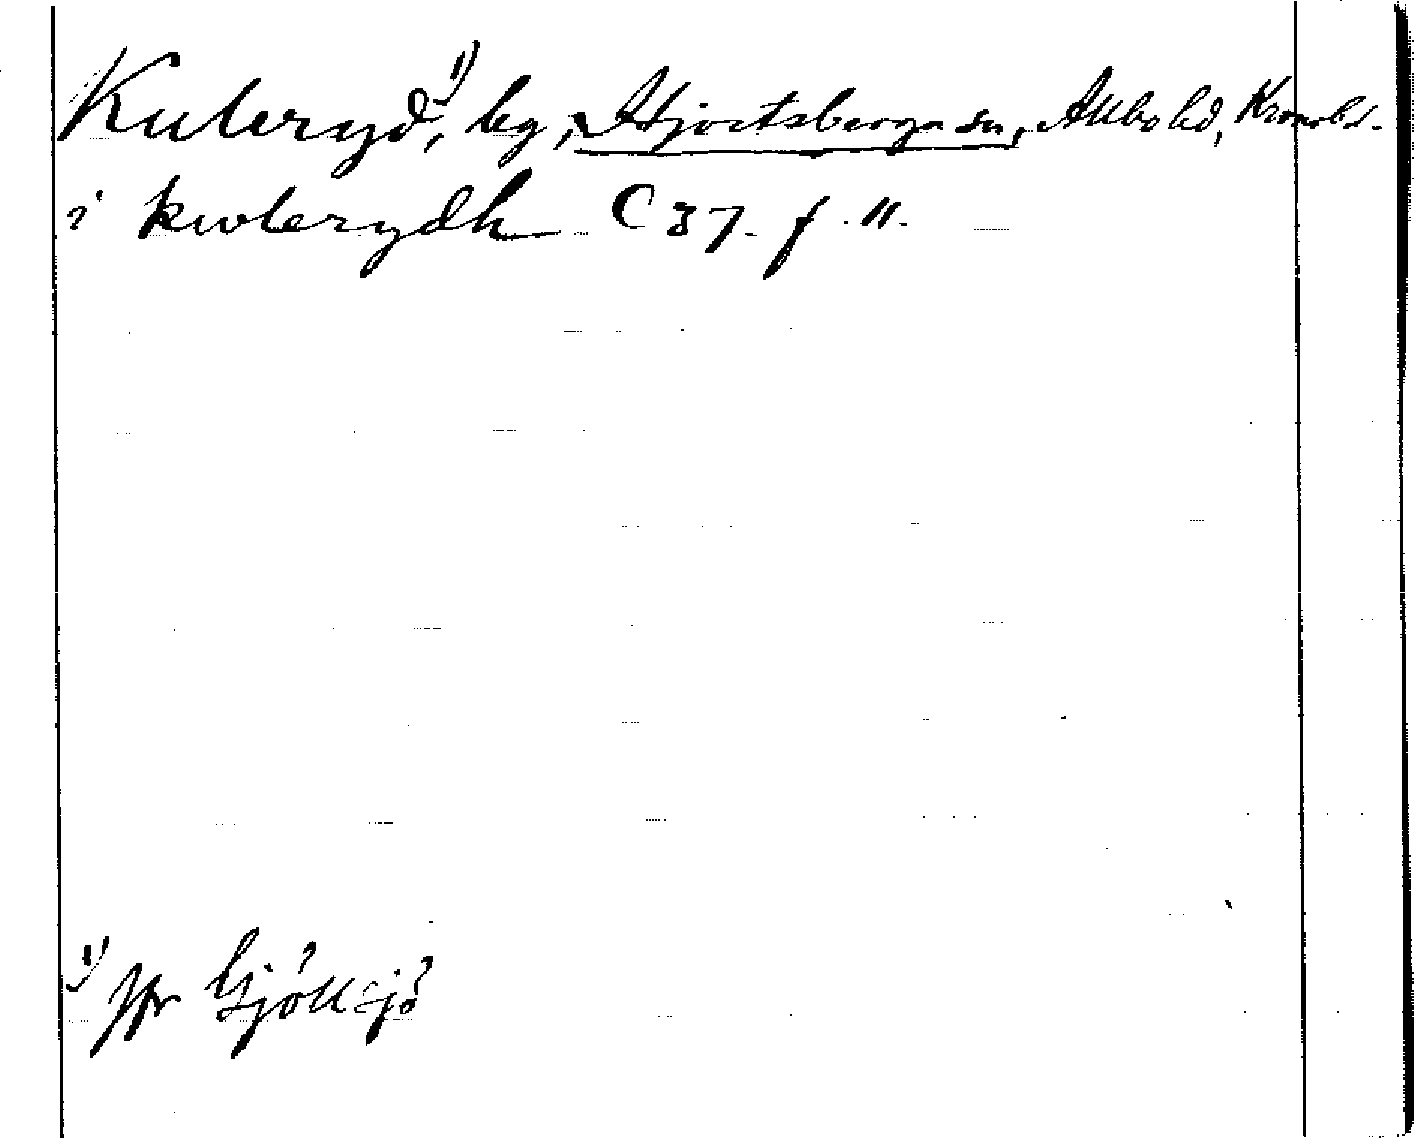 Kuleryd,¹⁾ by, Hjortsberga sn, Allbo hd, Kronobs.
i kwlerydh C 37. f. 11.
¹⁾ Jfr